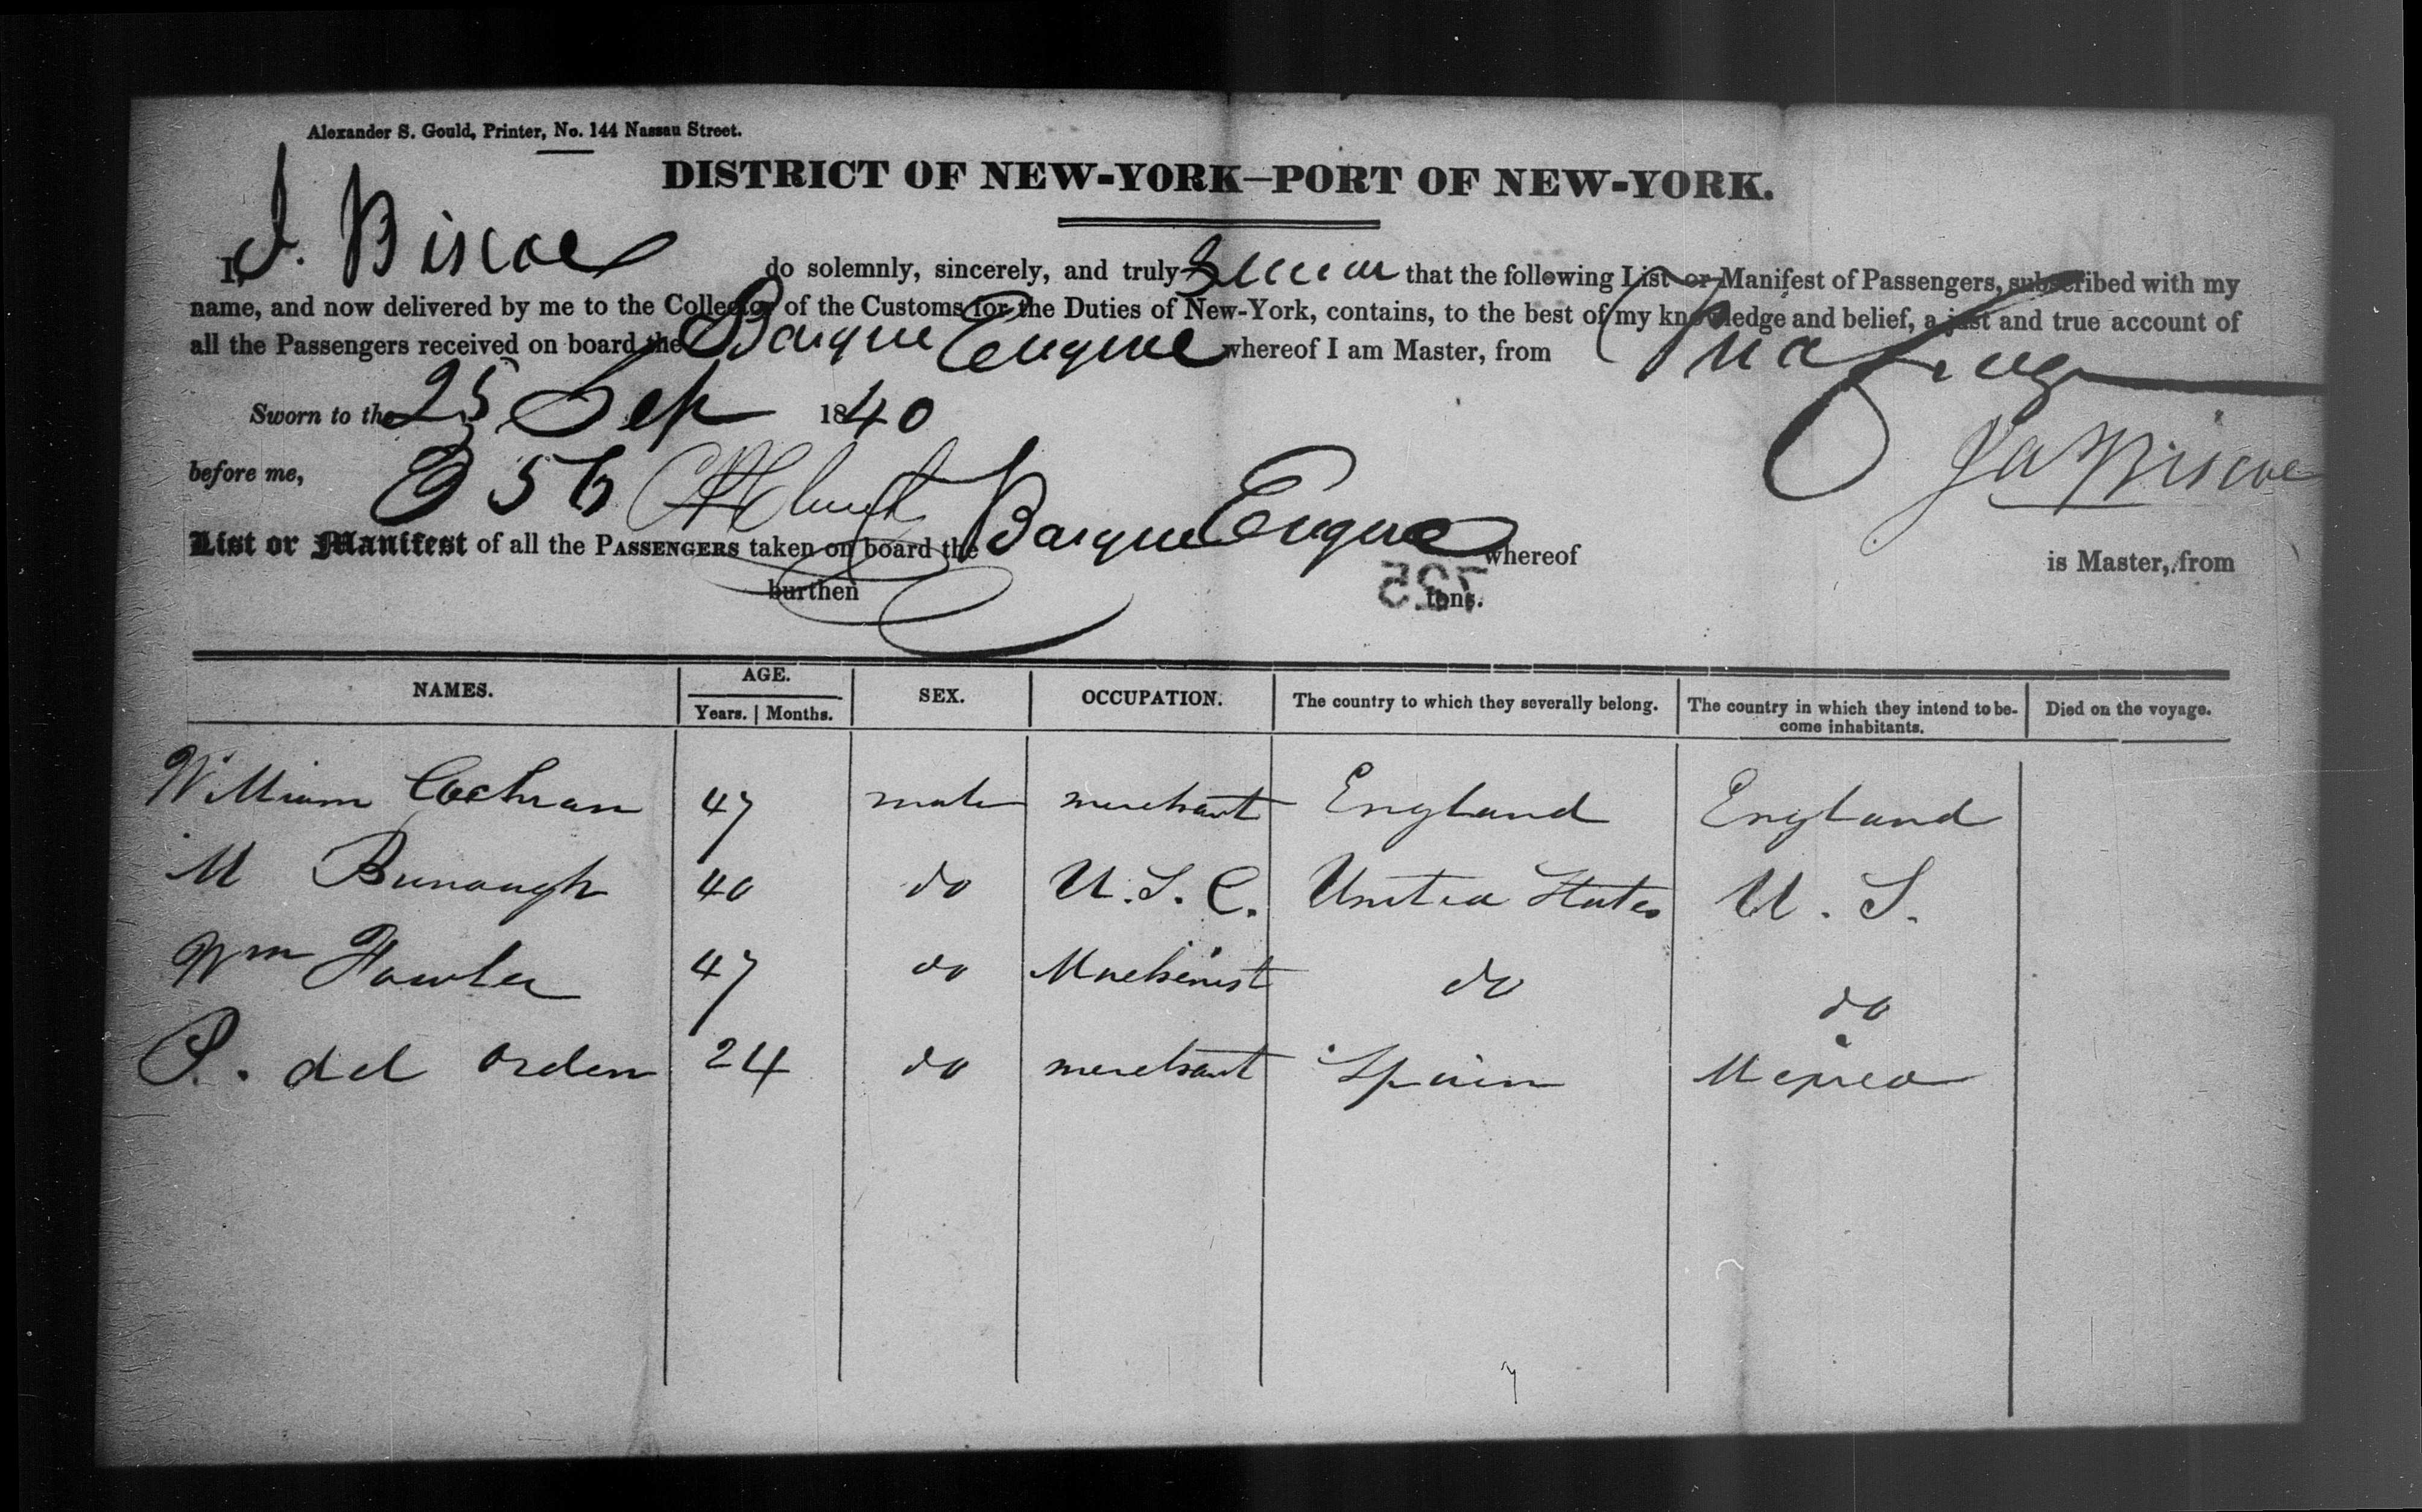 Alexander S. Gould, Printer, No. 144 Nassau Street.
DISTRICT OF NEW-YORK—PORT OF NEW-YORK.
I, J. Biscoe do solemnly, sincerely, and truly swear that the following List or Manifest of Passengers, subscribed with my
name, and now delivered by me to the Collector of the Customs for the Duties of New-York, contains, to the best of my knowledge and belief, a just and true account of
all the Passengers received on board the Barque Eugene whereof I am Master, from Vera Cruz
Sworn to the 25 Sep 1840
Ja Biscoe
before me, 956
List or Manifest of all the PASSENGERS taken on board the Barque Eugene whereof is Master, from
burthen tons. 735
NAMES. AGE. Years. Months. SEX. OCCUPATION. The country to which they severally belong. The country in which they intend to become inhabitants. Died on the voyage.
William Cochran 47 male merchant England England
M Burrough 40 do U.S.C. United States U.S.
Wm Fowler 47 do Machinist do do
P. del Orden 24 do merchant Spain Mexico